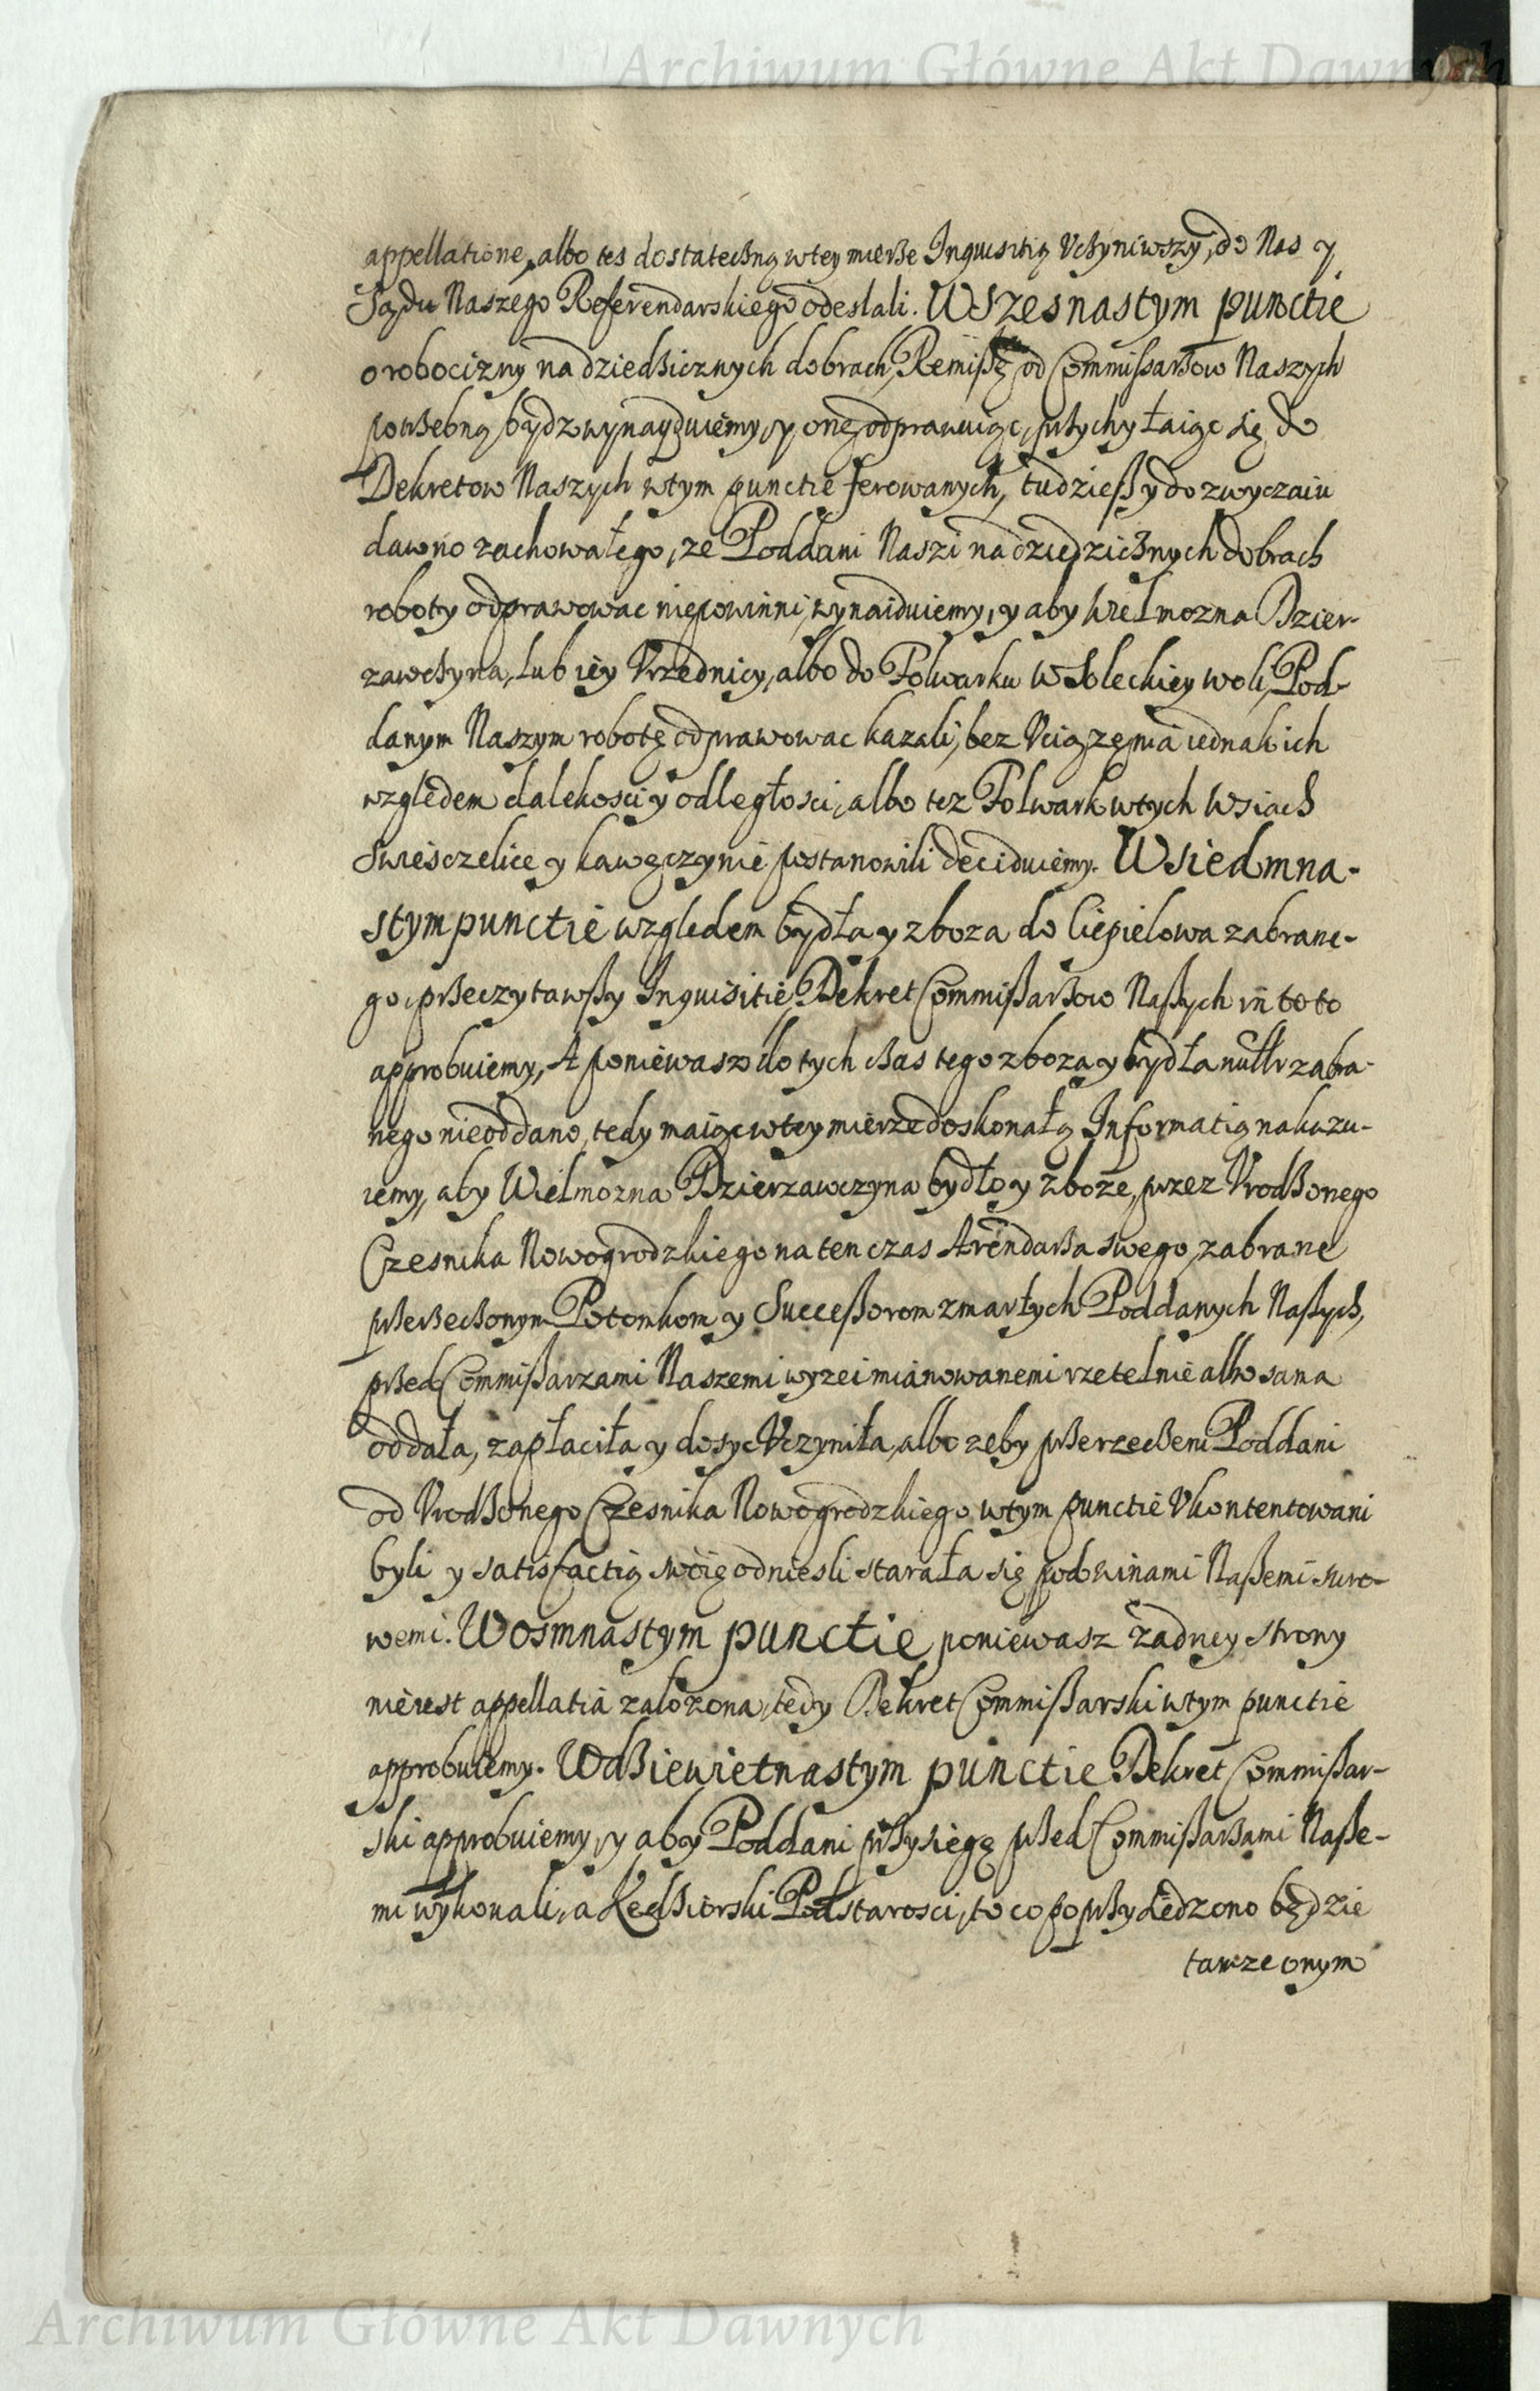 Archiwum Główne Akt Dawnych
appellatione, albo tes dostateczną wtey mierze Inquisitią Vczyniwszy, do Nas y
Sądu Naszego Referendarskiego odeslali. W Szesnastym punctie
o robocizny na dziedzicznych dobrach, Remissę od Commissarzow Naszych
potrzebną bydz wynayduiemy, y onę odprawuiąc, przychyłaiąc się do
Dekretow Naszych wtym punctie ferowanych, tudziesz y do zwyczaiu
dawno zachowałego, ze Poddani Naszi na dziedzicznych dobrach
roboty odprawowac niepowinni, wynaiduiemy, y aby Wielmozna Dzier-
zawczyna, lub iey Vrzednicy, albo do Folwarku w Soleckiey woli, Pod-
danym Naszym robotę odprawowac kazali, bez Vciązęnia iednak ich
względem dalekosci y odległosci, albo tez Folwark wtych wsiach
Swiesczelice y kawęczynie postanowili deciduiemy. W Siedmna-
stym punctie względem bydła y zboza do Ciepielowa zabrane-
go, przeczytawszy Inquisitie, Dekret Commissarzow Naszych in toto
approbuiemy, A poniewasz do tych czas tego zboza y bydła zabra-
nego nieoddano, tedy maiąc wtey mierze doskonałą Informatią nakazu-
iemy, aby Wielmozna Dzierzawczyna bydło y zboże, przez Vrodzonego
Czesnika Nowogrodzkiego na ten czas Arendarza swego, zabrane
przerzeczonym Potomkom y Successorom zmarłych Poddanych Naszych,
przed Commissarzami Naszemi wyzei mianowanemi rzetelnie albo sama
oddała, zapłaciła y dosyc Vczyniła, albo zeby przerzeczeni Poddani
od Vrodzonego Czesnika Nowogrodzkiego wtym punctie Vkontentowani
byli y satisfactią swoię odniesli starała się pod winami Naszemi suro-
wemi. W osmnastym punctie poniewasz żadney strony
nieiest appellatia założona, tedy Dekret Commissarski wtym punctie
approbuiemy. W dziewietnastym punctie Dekret Commissar-
ski approbuiemy, y aby Poddani przysięgę przed Commissarzami Nasze-
mi wykonali, a Kedzierski Podstarosci, to co poprzysiędzono będzie
tawze onym
Archiwum Główne Akt Dawnych